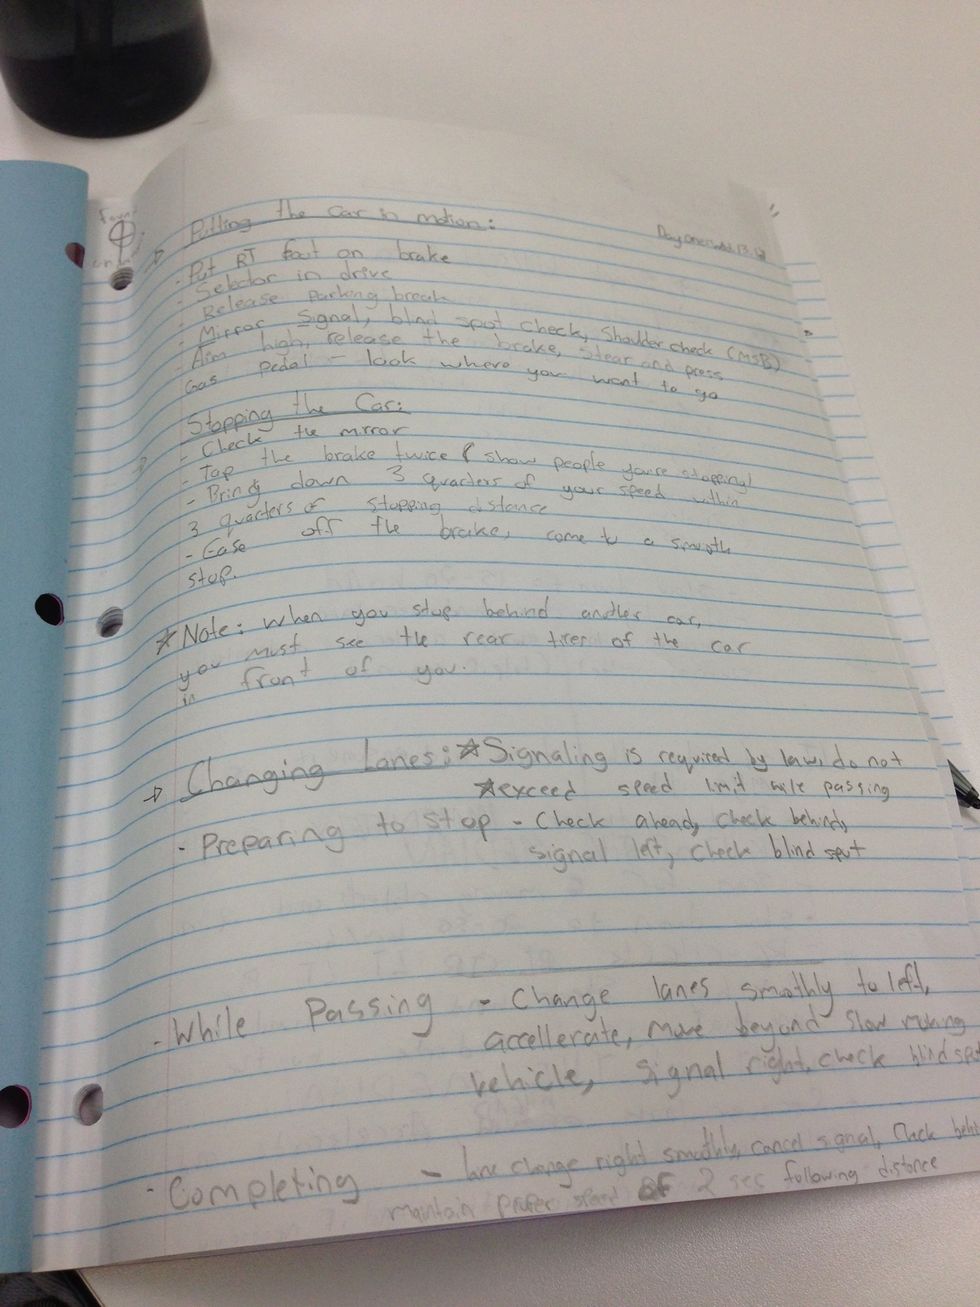 Putting the car in motion:
- Put RT foot on brake
- Selector in drive
- Release Parking break
- Mirror Signal, blind spot check, Shoulder check (MSB)
- Aim high, release the brake, Stear and press
Gas pedal - look where you want to go
Stopping the Car:
- Check the mirror
- Tap the brake twice (show people youre stopping)
- Bring down 3 quarters of your speed within
3 quarters of stopping distance
- Ease off the brake, come to a smooth
stop.
* Note: When you stop behind another car,
you must see the rear tires of the car
in front of you.
Changing Lanes: * Signaling is required by law, do not
* exceed speed limit while passing
- Preparing to stop - Check ahead, check behind,
signal left, Check blind spot
- While Passing - Change lanes smoothly to left,
accellerate, move beyond slow moving
vehicle, signal right, check blind spot
- Completing - lane change right smoothly, cancel signal, check behi
maintain proper speed of 2 sec following distance